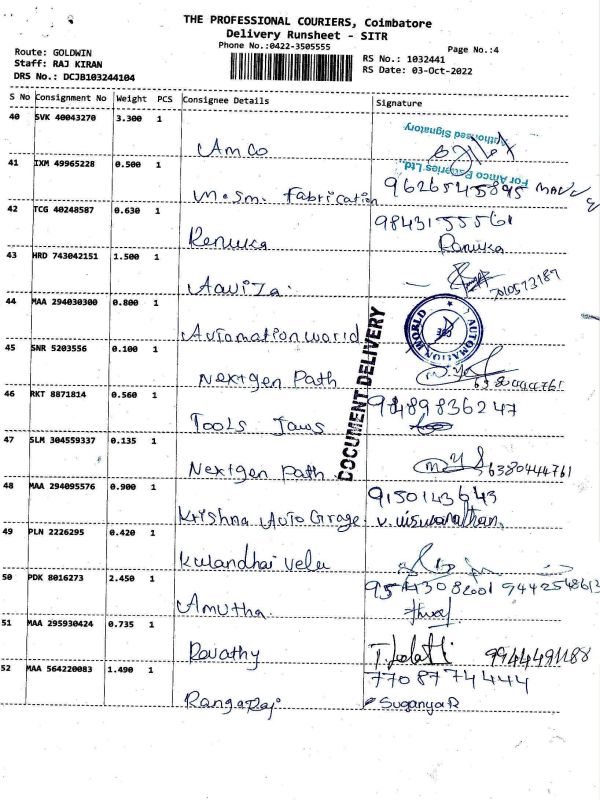 THE PROFESSIONAL COURIERS, Coimbatore
Delivery Runsheet - SITR
Phone No.:0422-3505555
Page No.:4
Route: GOLDWIN
Staff: RAJ KIRAN
DRS No.: DCJB103244104
RS No.: 1032441
RS Date: 03-Oct-2022
S No Consignment No Weight PCS Consignee Details Signature
40 SVK 40043270 3.300 1
Amco
Authorised Signatory
41 IXM 49965228 0.500 1
For Amco Batteries Ltd.
M.Sm. Fabrication 9626545895
42 TCG 40248587 0.630 1
9843155561
Renuka Ranuka
43 HRD 743042151 1.500 1
Aawiza. 7010573189
44 MAA 294030300 0.800 1
Automation world
AUTOMATION WORLD
CBE
45 SNR 5203556 0.100 1
Nextgen Path
DOCUMENT DELIVERY
46 RKT 8871814 0.560 1
9489836247
Tools Jaws
47 SLM 304559337 0.135 1
Nextgen path 6380444761
48 MAA 294095576 0.900 1
9150143643
Krishna Auto Grage V. Viswanathan,
49 PLN 2226295 0.420 1
Kulandhai velu
50 PDK 8016273 2.450 1
9442548613
Amutha.
51 MAA 295930424 0.735 1
Ravathy 9944491188
52 MAA 564220083 1.490 1
7708774444
RangaRaj Suganya R